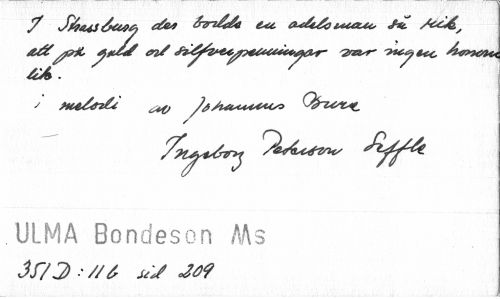 I Strassburg der bodde en adelsman så rik,
att på guld och silfverpenningar var ingen honom
lik.
i melodi av Johannes Bure
Ingeborg Peterson Säffle
ULMA Bondeson Ms
351 D: 11 b sid 209